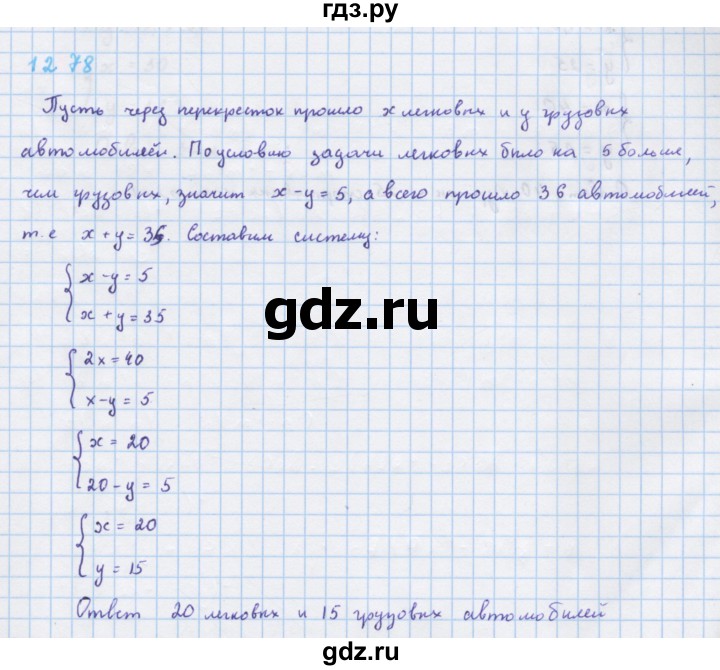 гдз.ру
1278
Пусть через перекресток прошло x легковых и y грузовых
автомобилей. По условию задачи легковых было на 5 больше,
чем грузовых, значит x-y=5, а всего прошло 36 автомобилей,
т.е x+y=35. Составим систему:
x-y=5
x+y=35
gdz.ru
2x=40
x-y=5
x=20
20-y=5
x=20
y=15
Ответ 20 легковых и 15 грузовых автомобилей